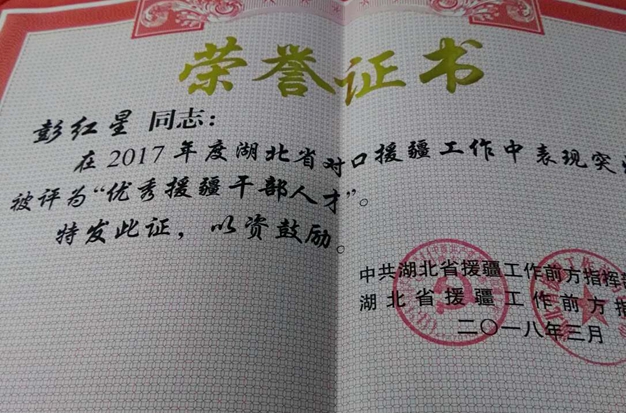 荣誉证书
彭红星 同志：
在2017年度湖北省对口援疆工作中表现突
被评为“优秀援疆干部人才”。
特发此证，以资鼓励。
中共湖北省援疆工作前方指挥部
湖北省援疆工作前方指
二〇一八年三月